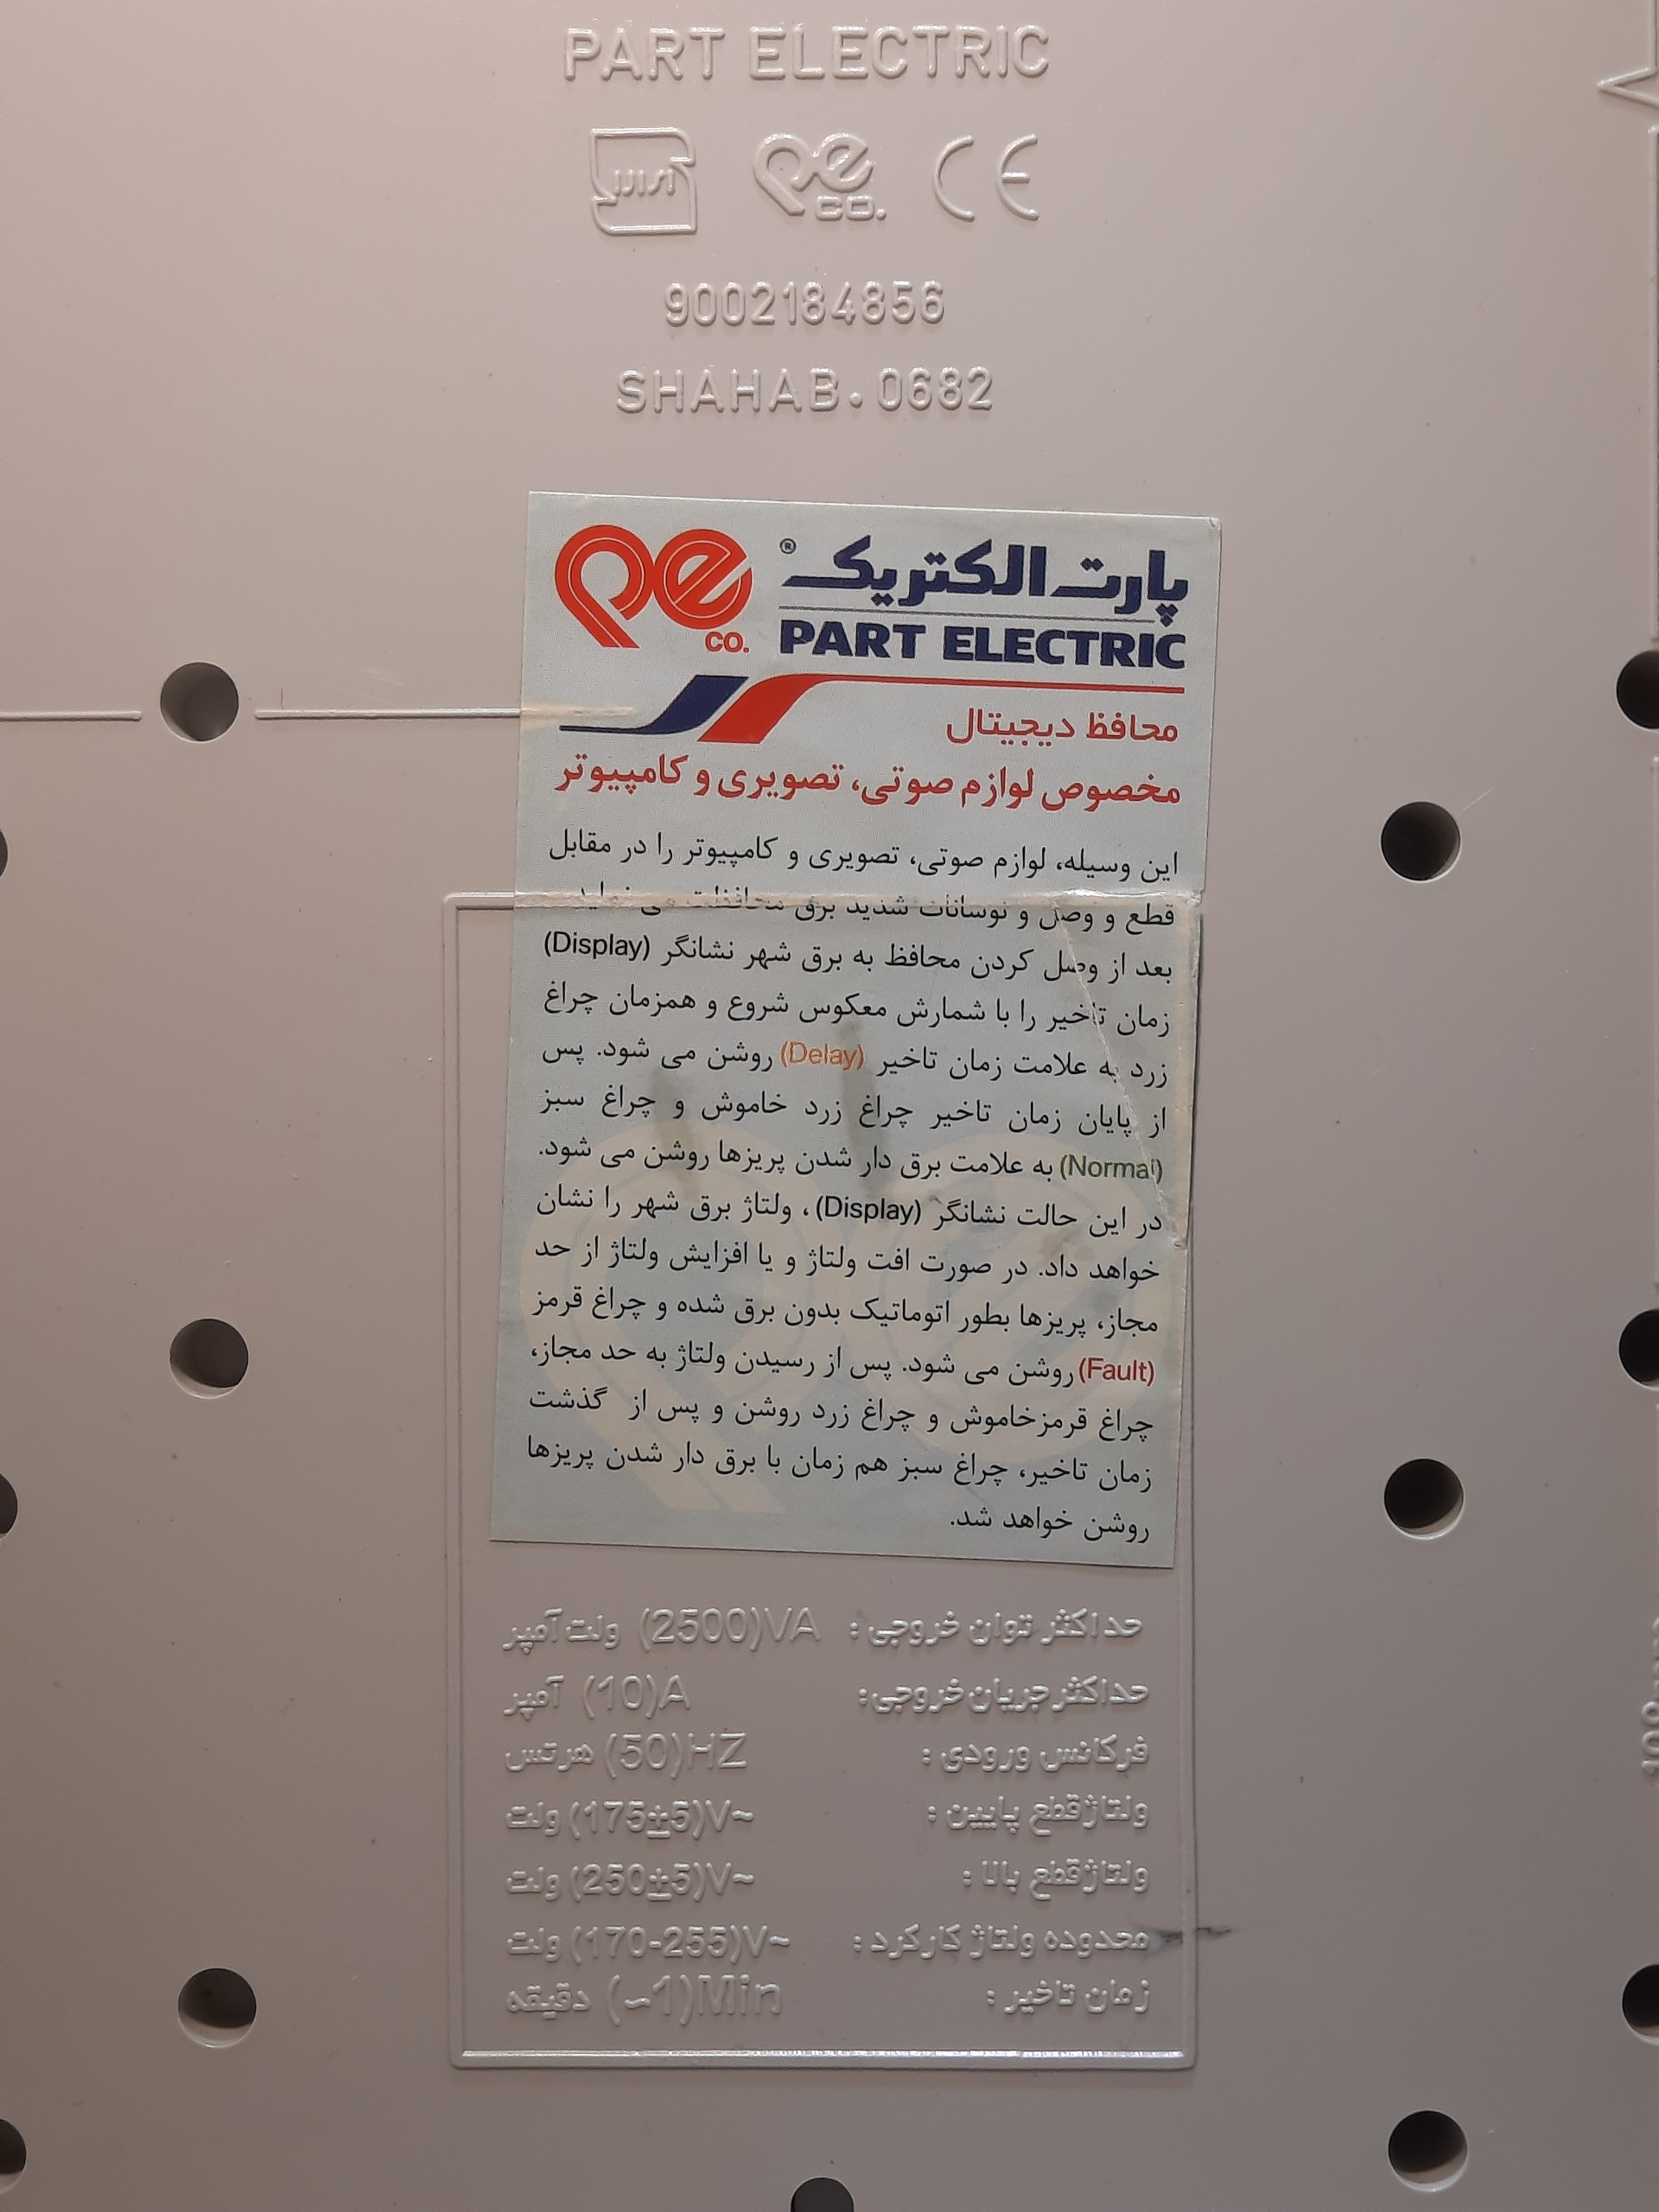 PART ELECTRIC
pe co. CE
9002184856
SHAHAB.0682
pe co.
پارت الکتریک ®
PART ELECTRIC
محافظ دیجیتال
مخصوص لوازم صوتی، تصویری و کامپیوتر
این وسیله، لوازم صوتی، تصویری و کامپیوتر را در مقابل
قطع و وصل و نوسانات شدید برق محافظت می نماید.
بعد از وصل کردن محافظ به برق شهر نشانگر (Display)
زمان تاخیر را با شمارش معکوس شروع و همزمان چراغ
زرد به علامت زمان تاخیر (Delay) روشن می شود. پس
از پایان زمان تاخیر چراغ زرد خاموش و چراغ سبز
(Normal) به علامت برق دار شدن پریزها روشن می شود.
در این حالت نشانگر (Display)، ولتاژ برق شهر را نشان
خواهد داد. در صورت افت ولتاژ و یا افزایش ولتاژ از حد
مجاز، پریزها بطور اتوماتیک بدون برق شده و چراغ قرمز
(Fault) روشن می شود. پس از رسیدن ولتاژ به حد مجاز،
چراغ قرمزخاموش و چراغ زرد روشن و پس از گذشت
زمان تاخیر، چراغ سبز هم زمان با برق دار شدن پریزها
روشن خواهد شد.
حداکثر توان خروجی: (2500)VA ولت آمپر
حداکثر جریان خروجی: (10)A آمپر
فرکانس ورودی: (50)HZ هرتس
ولتاژ قطع پایین: (175±5)V~ ولت
ولتاژ قطع بالا: (250±5)V~ ولت
محدوده ولتاژ کارکرد: (170-255)V~ ولت
زمان تاخیر: (~1)Min دقیقه